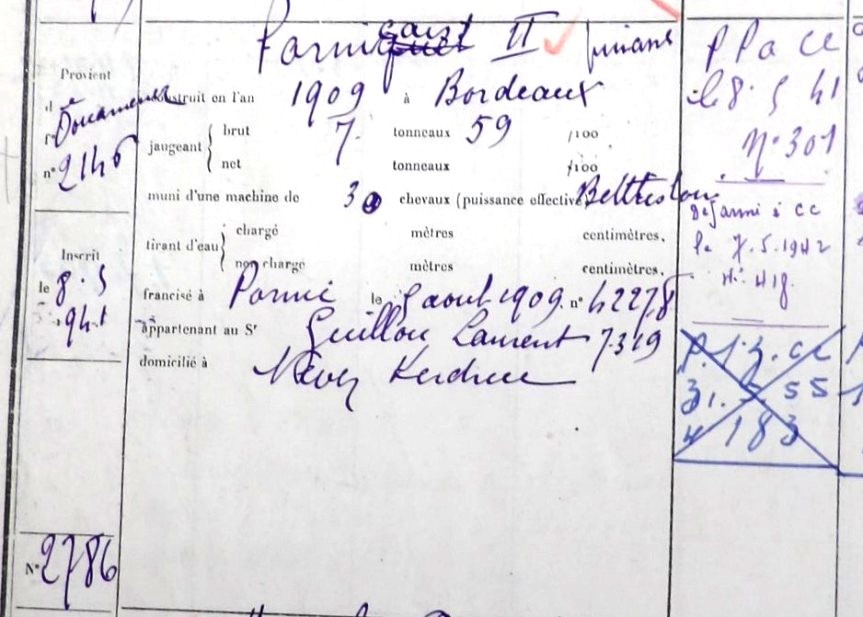 Pornicais II
Provient
d
Douarnenez
f
n° 2146
construit en l'an 1909 à Bordeaux
jaugeant { brut 7 tonneaux 59 /100
net tonneaux /100
muni d'une machine de 30 chevaux (puissance effective)
tirant d'eau { chargé mètres centimètres.
non chargé mètres centimètres.
francisé à le 5 aout 1909 n° 42278
appartenant au Sr Guillou Laurent 7319
domicilié à Névez
Inscrit
le 8.5
941
N° 2786
PPa CC
le 8 5 41
n° 301
désarmé à CC
le 7.5.1942
N° 418
31. 5 55
183